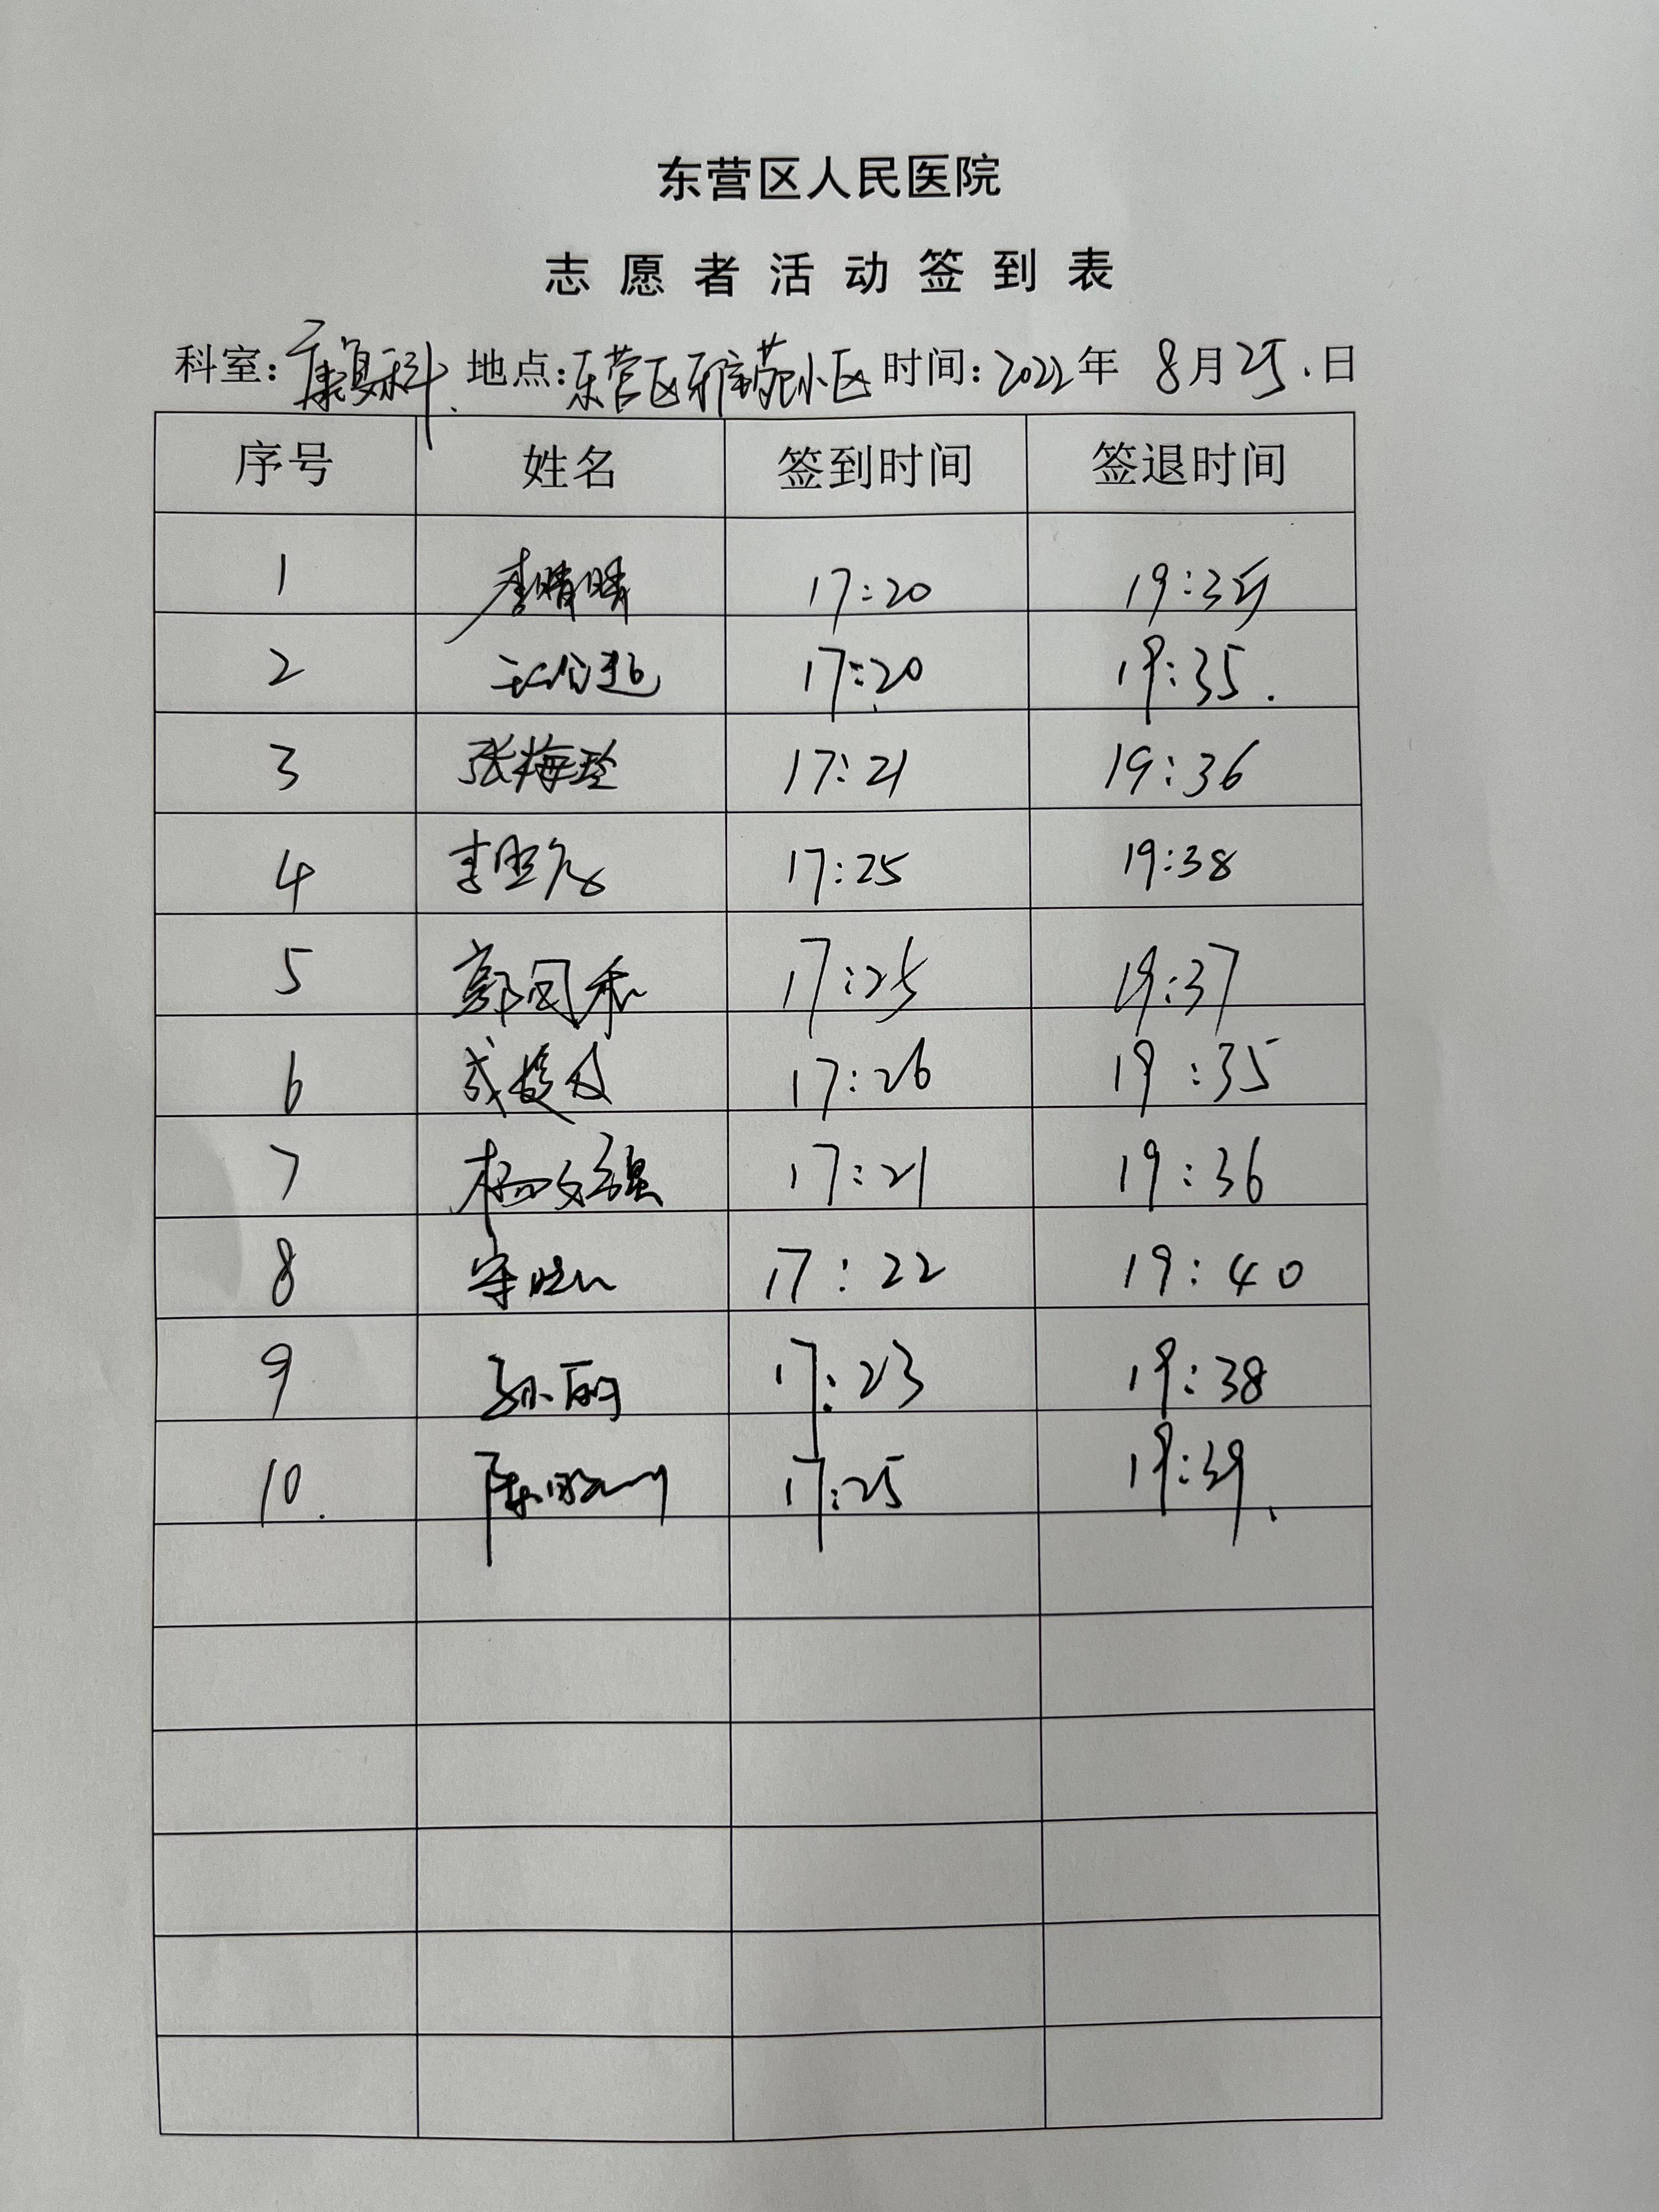 东营区人民医院
志愿者活动签到表
科室:康复科. 地点:东营区雅苑小区 时间:2022年 8月25.日
序号 姓名 签到时间 签退时间
1 李晴晴 17:20 19:35
2 17:20 19:35.
3 张梅玲 17:21 19:36
4 李 17:25 19:38
5 郭同和 17:25 19:37
6 成 17:26 19:35
7 杨文强 17:21 19:36
8 17:22 19:40
9 孙丽 17:23 19:38
10. 陈 17:25 19:39.